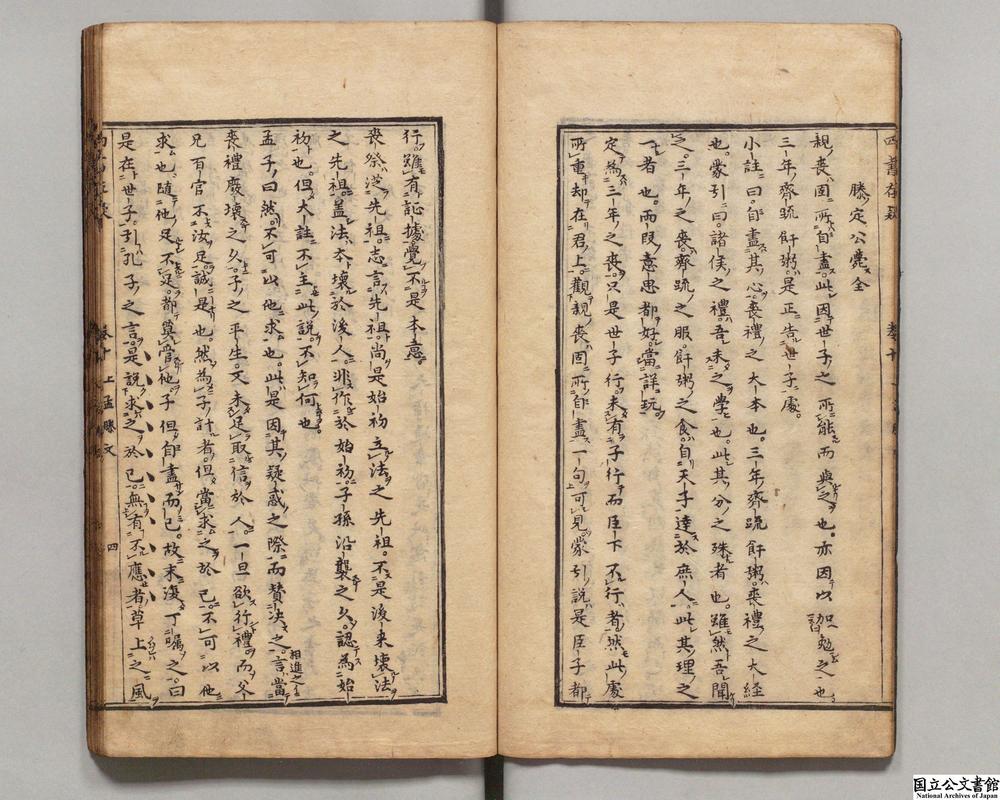 滕定公薨全
親喪固所自盡此因世子之所能而與之也亦因以勉之也
三年齊疏飦粥是正告世子處
小註曰自盡其心喪禮之大本也三年齊疏飦粥喪禮之大經
也蒙引曰諸侯之禮吾未之學也此其分之殊者也雖然吾聞
之三年之喪齊疏之服飦粥之食自天子達於庶人此其理之
一者也兩段意思都好當詳玩
定為三年之喪只是世子行未有子行而臣下不行者然此處
所重却在君上觀親喪固所自盡一句可見蒙引說是臣子都
行雖有証據覺不是本意
喪祭從先祖志言先祖尚是始初立法之先祖不是後来壞法
之先祖盖法夲壞於後人非作於始初子孫沿襲之久認為始
初也但大註不主此說不知何也
孟子曰然不可以他求也此是因其疑惑之際而賛决之言當
喪禮廢壞之久子之平生又未足取信於人一旦欲行禮而父
兄百官不汝足誠是也然為子計者但當求之於己不可以他
求也隨他足不足都莫管他子但自盡而已故末復丁嘱之曰
是在世子引孔子之言是說求之於己無有不應者草上之風
上孟滕文
四
国立公文書館
National Archives of Japan